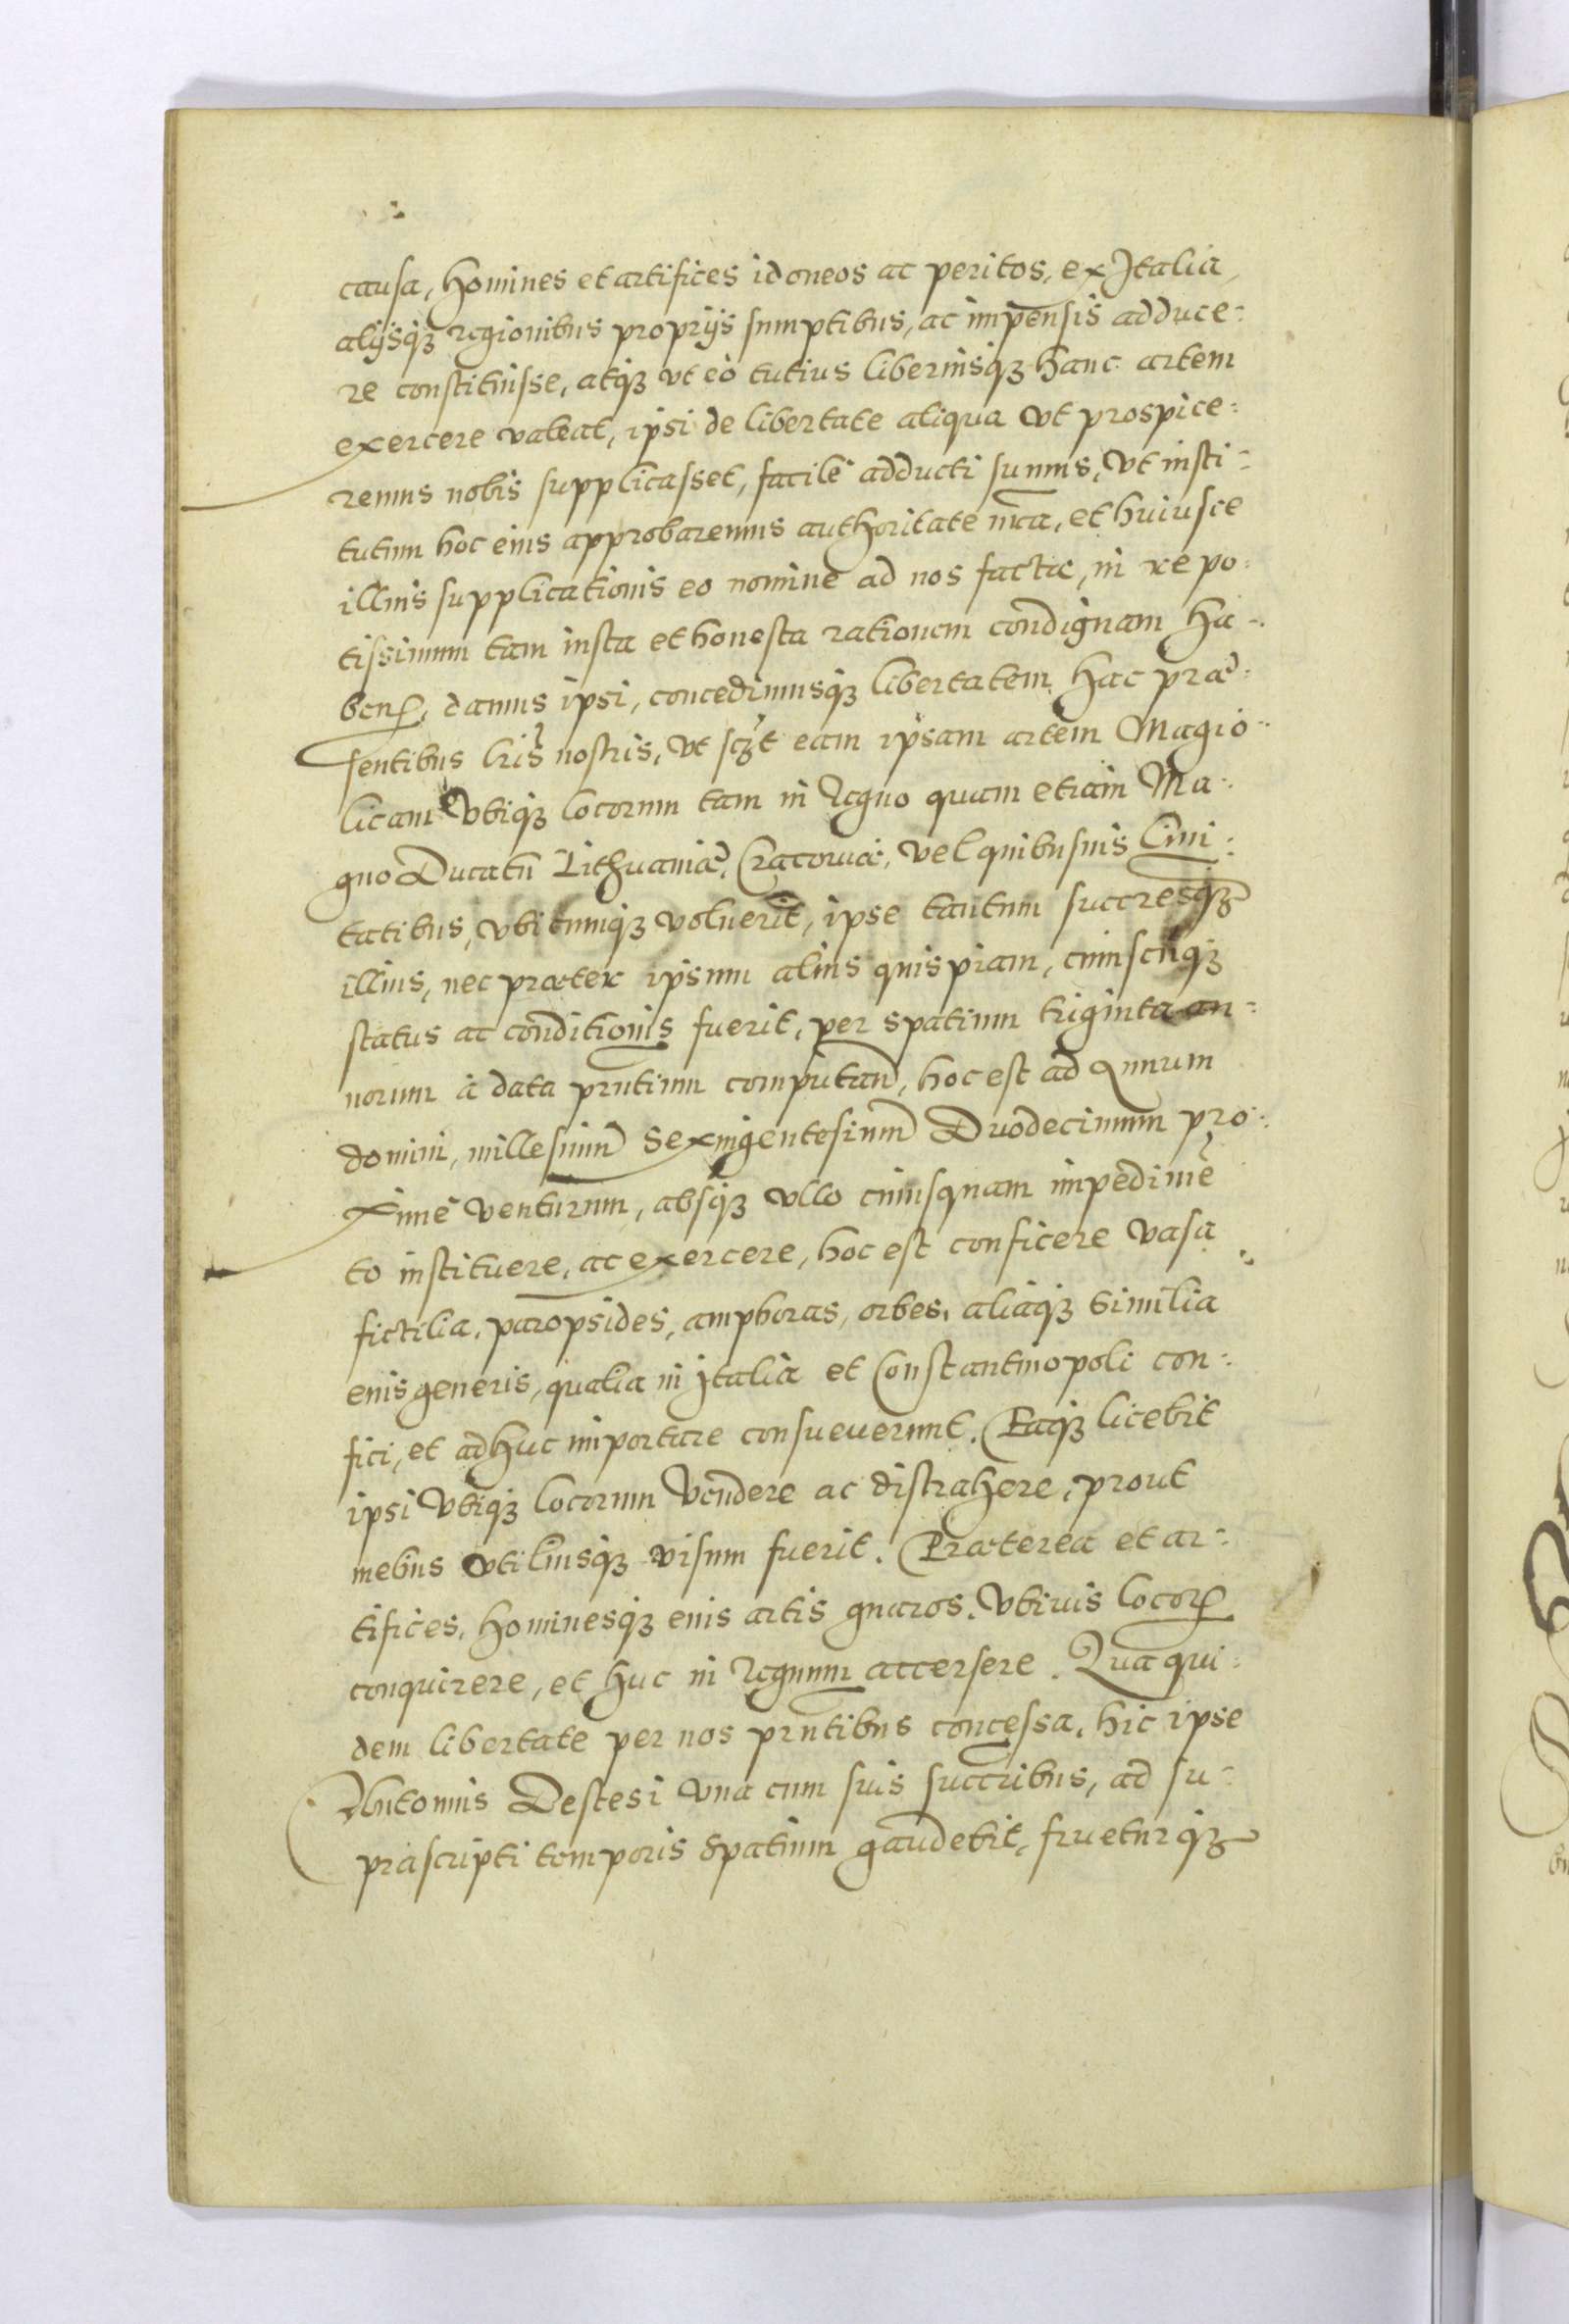 causa, homines et artifices idoneos ac peritos, ex Italia,
alijsqꝫ regionibus proprijs sumptibus, ac impensis adduce:
re constituisse, atqꝫ vt eò tutius liberiusqꝫ hanc artem
exercere valeat, ipsi de libertate aliqua vt prospice:
remus nobis supplicasset, facilè adducti sumus, vt insti:
tutum hoc eius approbaremus authoritate nr̃a, et huiusce
illius supplicationis eo nomine ad nos factæ, in re po:
tissimum tam iusta et honesta rationem condignam ha:
ben, damus ipsi, concedimusqꝫ libertatem hac præ:
sentibus lris nostris, vt scꝫt eam ipsam artem Magio:
licam vbiqꝫ locorum tam in Regno quam etiam Ma:
gno Ducatu Lithuaniæ, Cracouiæ, vel quibusuis Ciui:
tatibus, vbicumqꝫ voluerit, ipse tantum succresqꝫ
illius, nec præter ipsum alius quispiam, cuiuscuqꝫ
status ac conditionis fuerit, per spatium triginta an:
norum à data prñtium computan, hoc est ad Annum
domini, millesimũ Sexingentesimũ Duodecimum pro:
ximè venturum, absqꝫ vllo cuiusquam impedimẽ
to instituere, ac exercere, hoc est conficere vasa
fictilia, paropsides, amphoras, orbes, aliaqꝫ similia
eius generis, qualia in Italia et Constantinopoli con:
fici, et adhuc importare consueuerunt. Eaqꝫ licebit
ipsi vbiqꝫ locorum vendere ac distrahere, prout
melius vtiliusqꝫ visum fuerit. Præterea et ar:
tifices, hominesqꝫ eius artis gnaros, vbiuis locor
conquirere, et huc in Regnum accersere. Qua qui:
dem libertate per nos prñtibus concessa, hic ipse
Antonius Destesi vna cum suis succribus, ad su:
præscripti temporis spatium gaudebit, frueturqꝫ